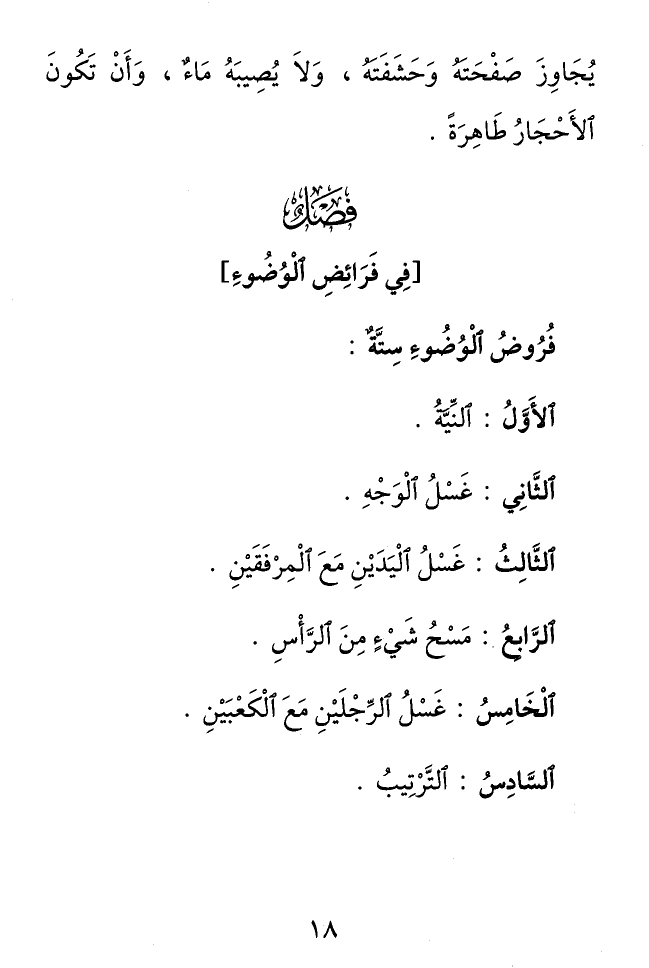 يُجَاوِزَ صَفْحَتَهُ وَحَشَفَتَهُ ، وَلاَ يُصِيبَهُ مَاءٌ ، وَأَنْ تَكُونَ
ٱلأَحْجَارُ طَاهِرَةً .
فَصْلٌ
[فِي فَرَائِضِ ٱلْوُضُوءِ]
فُرُوضُ ٱلْوُضُوءِ سِتَّةٌ :
ٱلأَوَّلُ : ٱلنِّيَّةُ .
ٱلثَّانِي : غَسْلُ ٱلْوَجْهِ .
ٱلثَّالِثُ : غَسْلُ ٱلْيَدَيْنِ مَعَ ٱلْمِرْفَقَيْنِ .
ٱلرَّابِعُ : مَسْحُ شَيْءٍ مِنَ ٱلرَّأْسِ .
ٱلْخَامِسُ : غَسْلُ ٱلرِّجْلَيْنِ مَعَ ٱلْكَعْبَيْنِ .
ٱلسَّادِسُ : ٱلتَّرْتِيبُ .
١٨